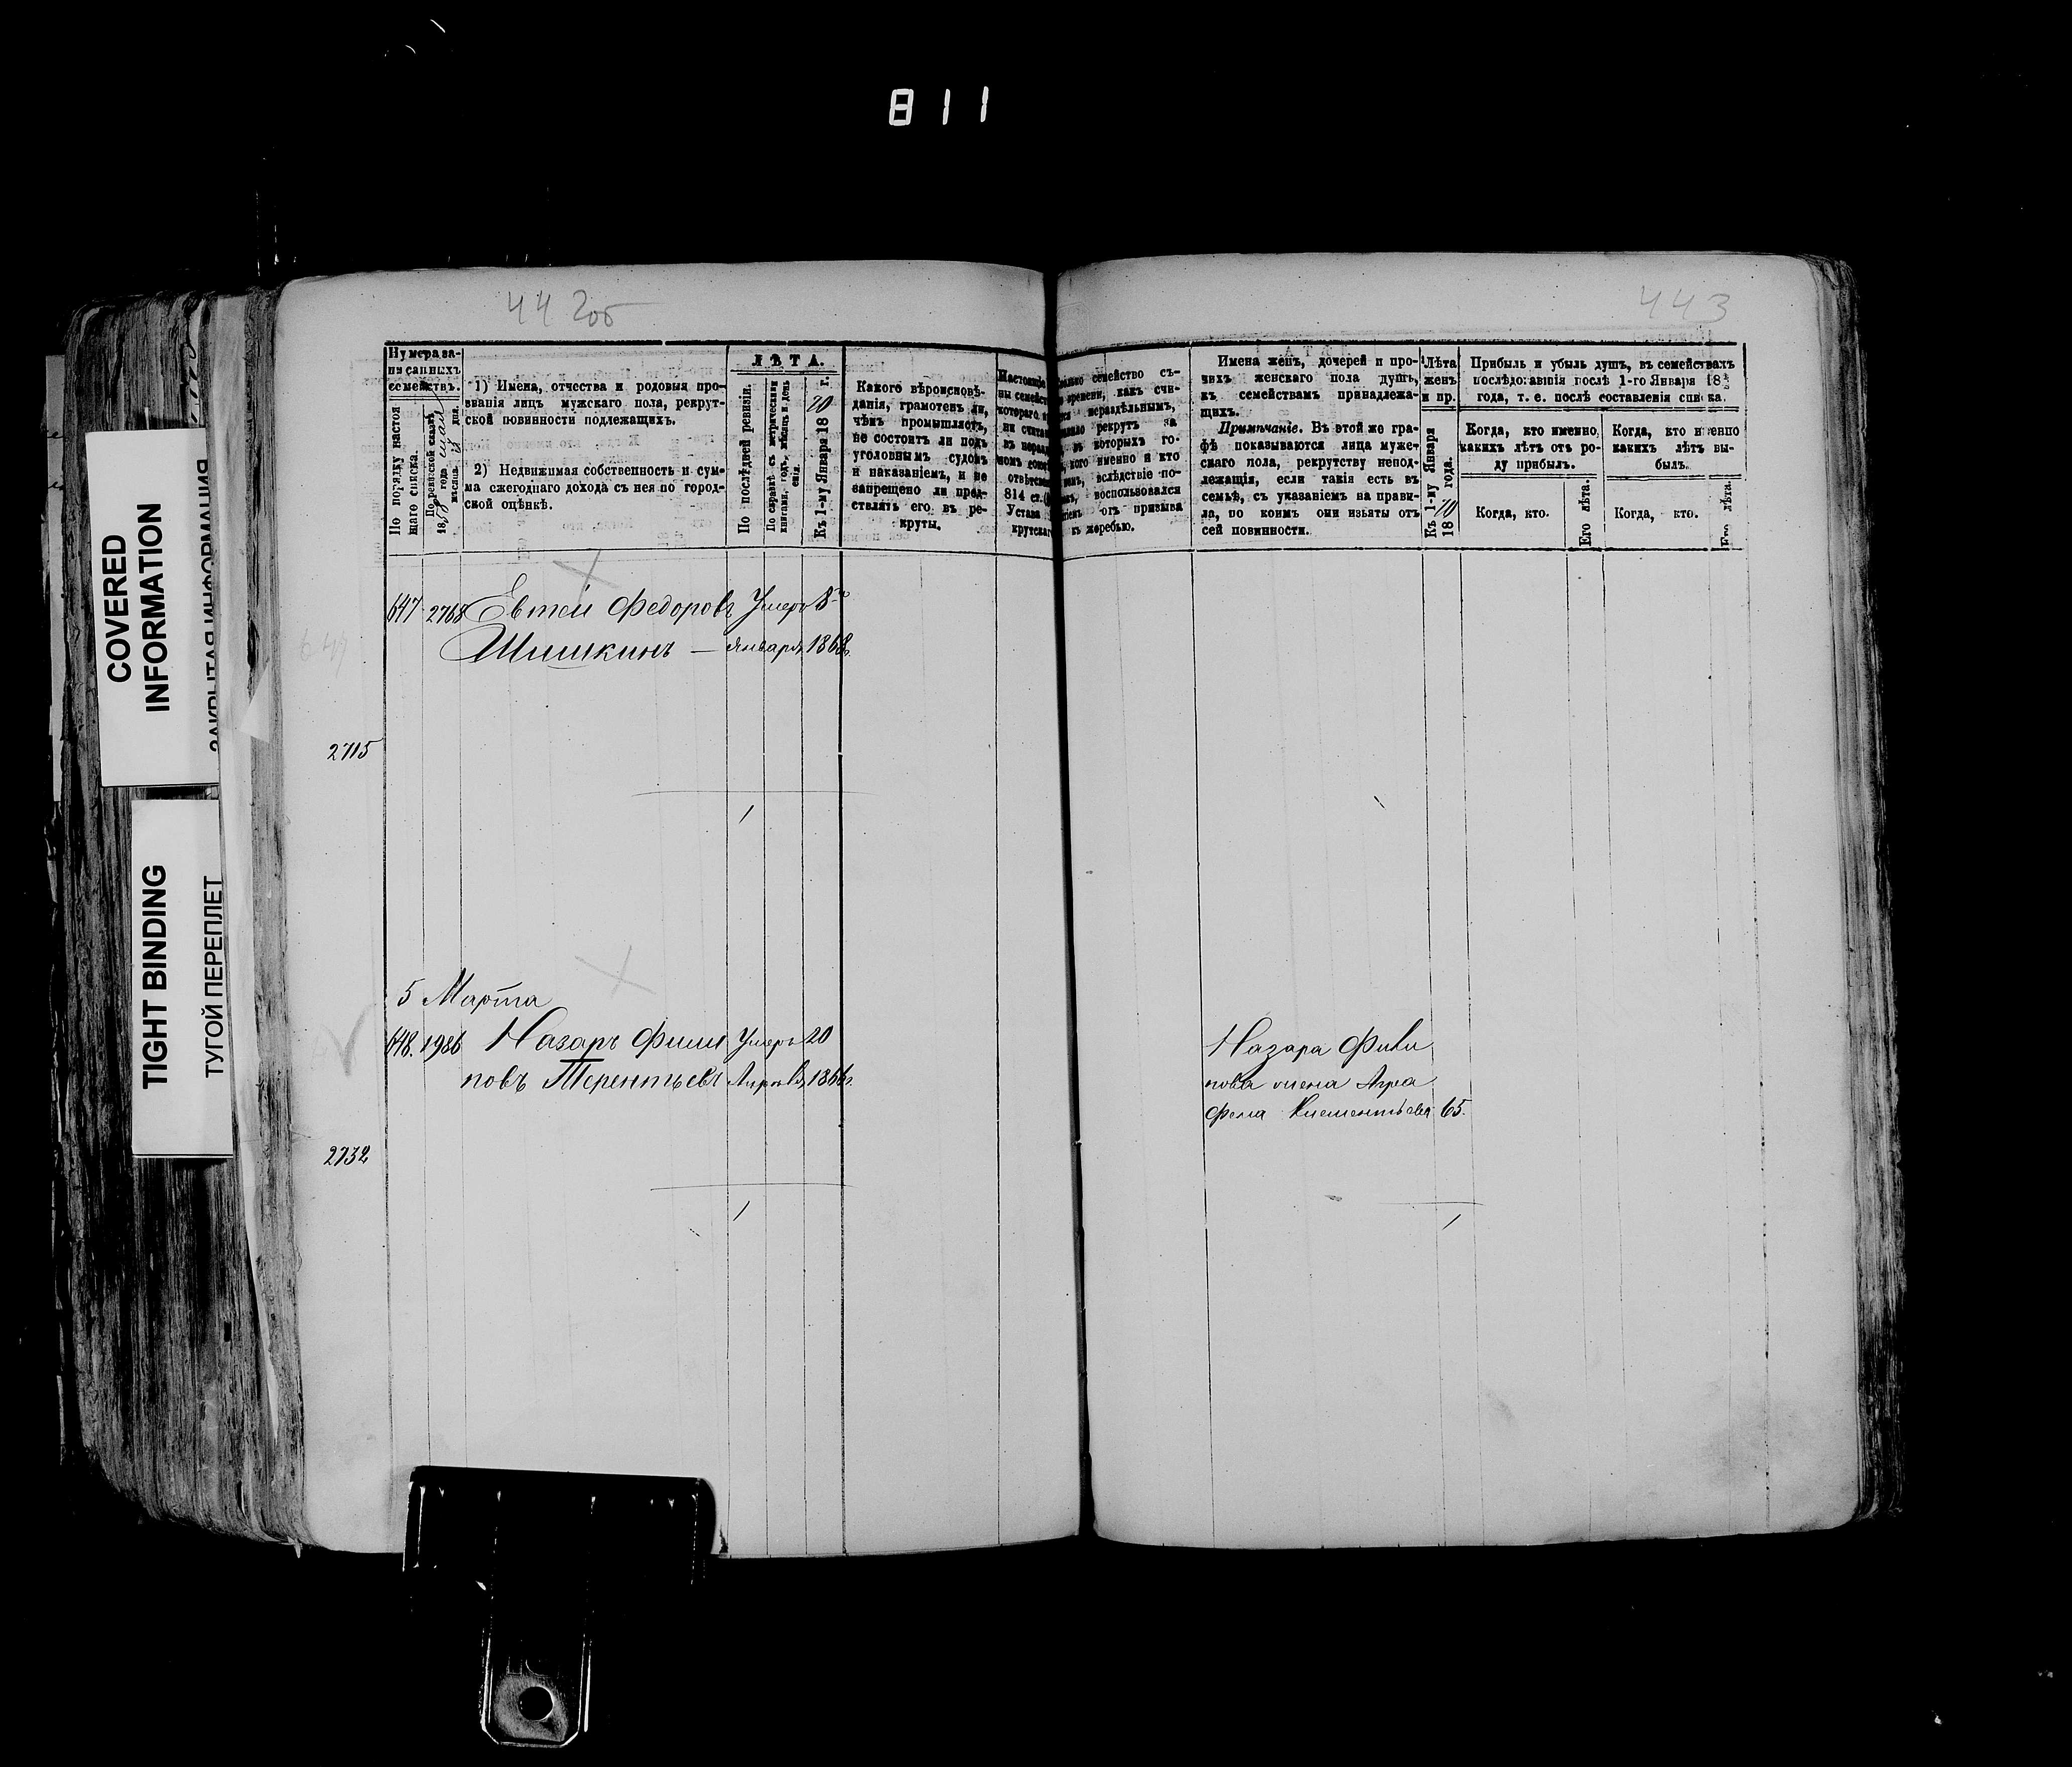 811
442об
443
COVERED
INFORMATION
ЗАКРЫТАЯ ИНФОРМАЦИЯ
TIGHT BINDING
ТУГОЙ ПЕРЕПЛЕТ
Нумера за-
писанныхъ
семействъ.
По порядку настоя
щаго списка.
По ревизской сказкѣ
1858 года
мѣсяца дня.
1) Имена, отчества и родовыя про-
званія лицъ мужскаго пола, рекрут-
ской повинности подлежащихъ.
2) Недвижимая собственность и сум-
ма ежегоднаго дохода съ нея по город-
ской оцѣнкѣ.
ЛѢТА.
По послѣдней ревизіи.
По справкѣ съ метрическими
книгами, годъ, мѣсяцъ и день
Къ 1-му Января 1870 г.
Какого вѣроисповѣ-
данія, грамотенъ ли,
чѣмъ промышляетъ,
не состоитъ ли подъ
уголовнымъ судомъ
и наказаніемъ, и не
запрещено ли пред-
ставлять его въ ре-
круты.
814 ст.
Устава
семейство съ-
времени, какъ счи-
нераздѣльнымъ,
рекрутъ за
въ которыхъ го-
кого именно и кто
вслѣдствіе по-
воспользовался
отъ призыва
къ жеребью.
Имена женъ, дочерей и про-
чихъ женскаго пола душъ,
къ семействамъ принадлежа-
щихъ.
Примѣчаніе. Въ этой же гра-
фѣ показываются лица муже-
скаго пола, рекрутству непод-
лежащія, если такія есть въ
семьѣ, съ указаніемъ на прави-
ла, по коимъ они изъяты отъ
сей повинности.
Лѣта
женъ
и пр.
Къ 1-му Января
1870 года.
Прибыль и убыль душъ, въ семействахъ
послѣдовавшія послѣ 1-го Января 18
года, т. е. послѣ составленія списка.
Когда, кто именно,
какихъ лѣтъ отъ ро-
ду прибылъ.
Когда, кто именно
какихъ лѣтъ вы-
былъ.
Когда, кто.
Его лѣта.
Когда, кто.
Его лѣта.
647 2768 Евтей Федоровъ Умеръ 8го
Шишкинъ — Января 1868г.
649
2715
1
5 Марта
648. 1986 Назаръ Фили Умеръ 20
повъ Терентьевъ Апрѣля 1866г.
Назара Фили
пова жена Агра
фена Клементьева 65.
2732
1
1